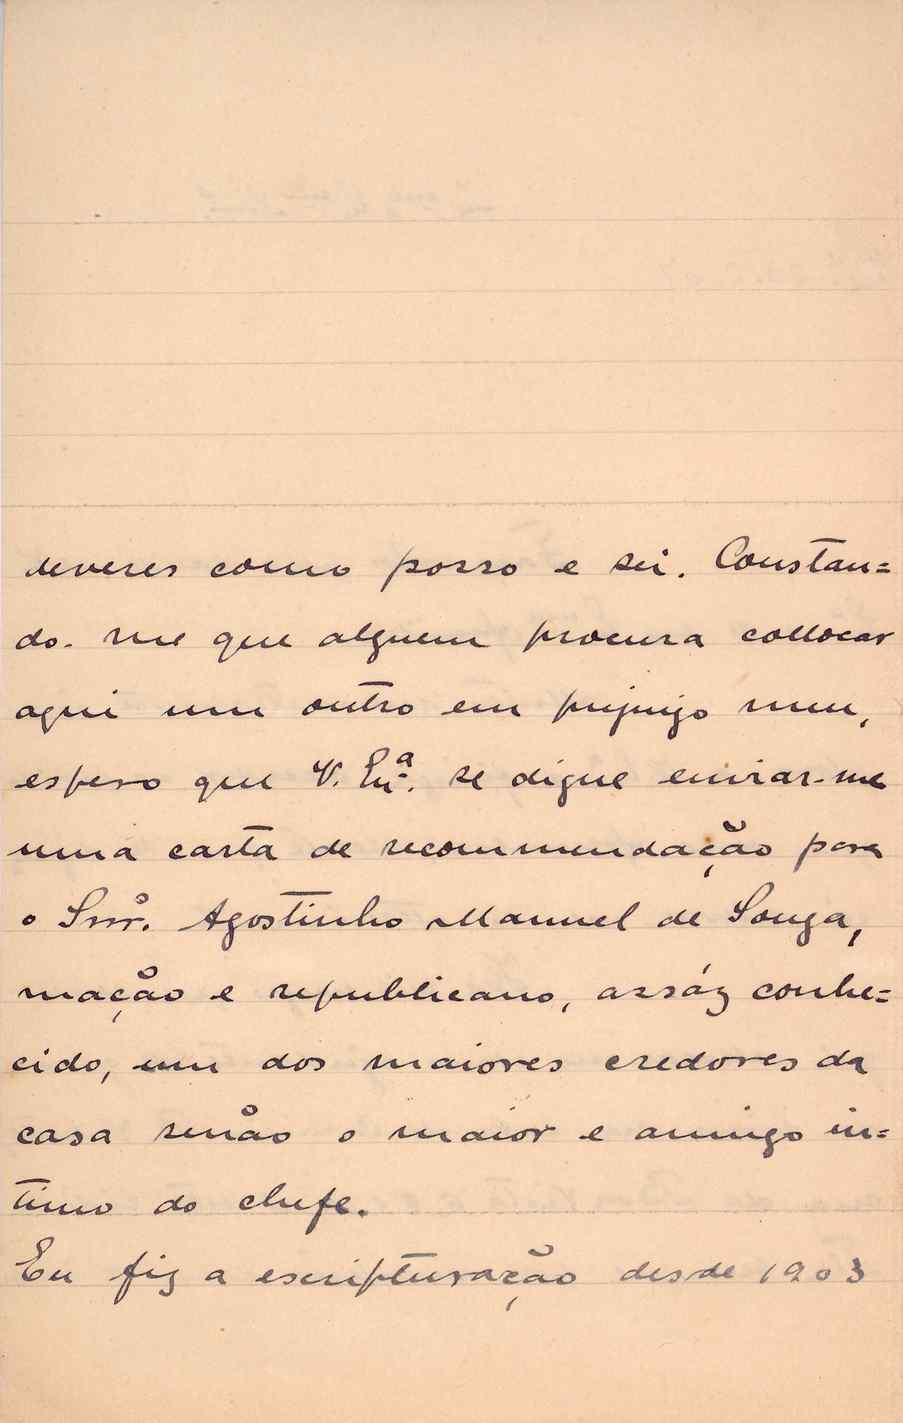 deveres como posso e sei. Constan=
do-me que alguem procura collocar
aqui um outro em prejuizo meu,
espero que V. Exª. se digne enviar-me
uma carta de recommendação para
o Snr. Agostinho Manuel de Souza,
mação e republicano, assáz conhe=
cido, um dos maiores credores da
casa senão o maior e amigo in=
timo do chefe.
Eu fiz a escripturação desde 1903